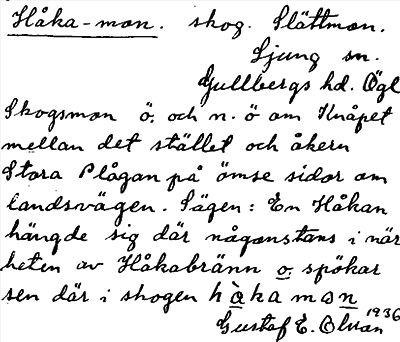 Håka-mon. skog. Slättmon.
Ljung sn.
Gullbergs hd. Ögl
Skogsmon ö. och n. ö om Knåpet
mellan det stället och åkern
Stora Plågan på ömse sidor om
landsvägen. Sägen: En Håkan
hängde sig där någonstans i när
heten av Håkabränn o. spökar
sen där i skogen hàka mon
Gustaf E. 1936